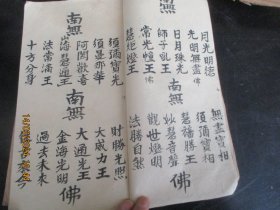 南無
月光明德
光明無盡佛
日月珠光
師子乳王
常光幢王佛
慧炬燈王
南無
無盡寶相
須彌寶相
慧幢勝王
妙琴音聲
觀世燈明
法勝自然
佛
南無
須彌寶光
須曼那華
阿閦歡喜
山海慧通王
法常滿王
十方分身
南無
財勝光照
大威力王
大通光王
金海光明
過去未來
佛